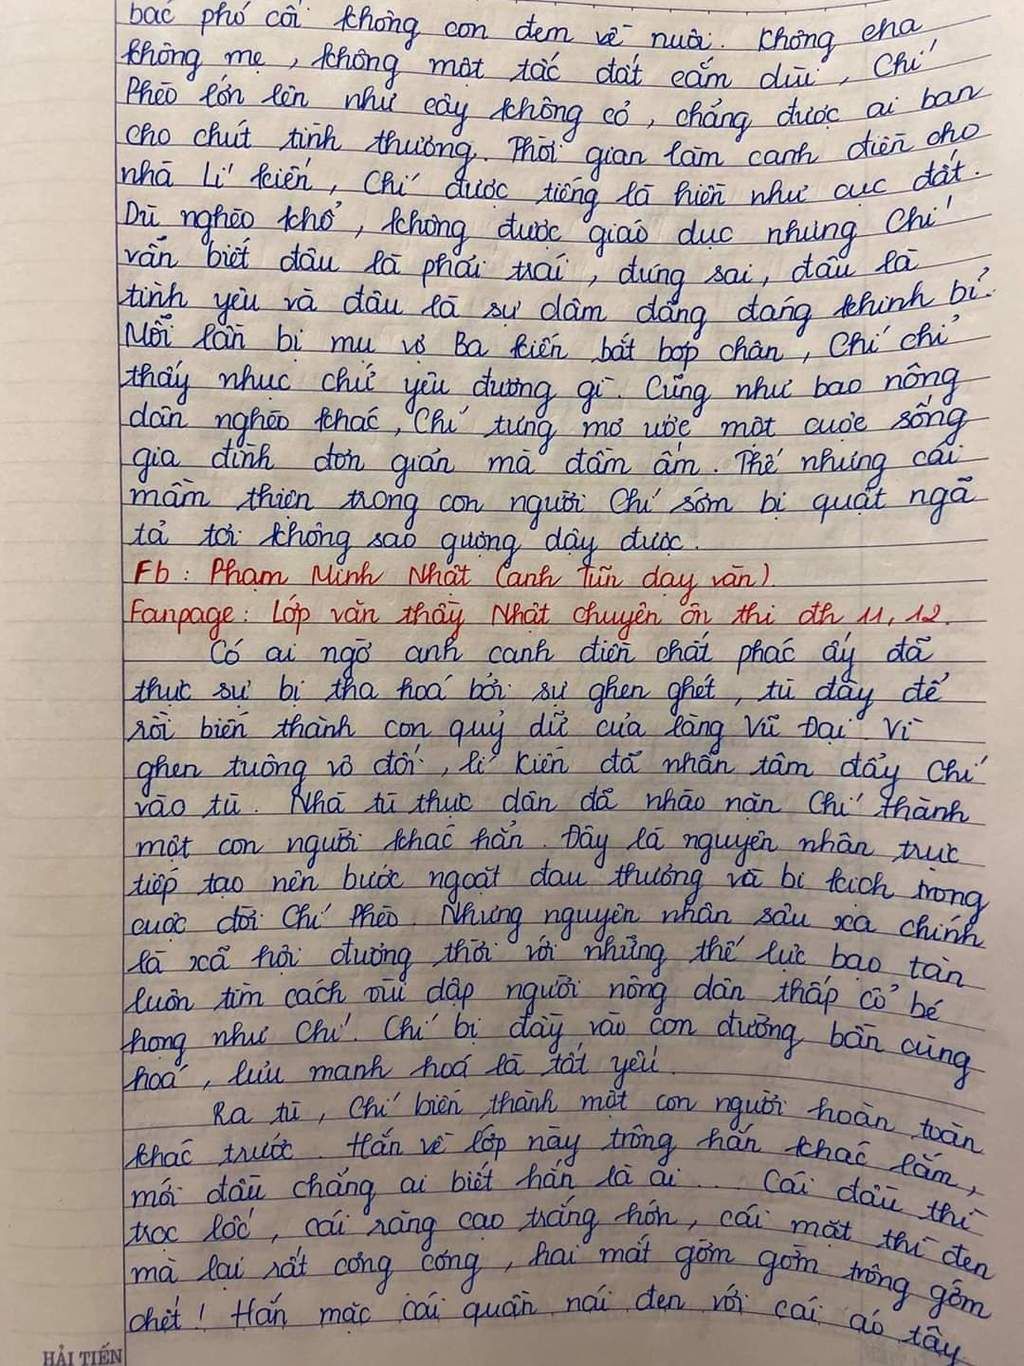 bác phó cối không con đem về nuôi. Không cha
không mẹ, không một tấc đất cắm dùi, Chí
Phèo lớn lên như cây không cỏ, chẳng được ai ban
cho chút tình thương. Thời gian làm canh điền cho
nhà Lí kiến, Chí được tiếng là hiền như cục đất.
Dù nghèo khổ, không được giáo dục nhưng Chí
vẫn biết đâu là phải trái, đúng sai, đâu là
tình yêu và đâu là sự dâm đãng đáng khinh bỉ.
Mỗi lần bị mụ vợ Ba kiến bắt bóp chân, Chí chỉ
thấy nhục chứ yêu đương gì. Cũng như bao nông
dân nghèo khác, Chí từng mơ ước một cuộc sống
gia đình đơn giản mà đầm ấm. Thế nhưng cái
mầm thiện trong con người Chí sớm bị quật ngã
tả tơi không sao gượng dậy được.
Fb: Phạm Minh Nhật (anh Tũn dạy văn).
Fanpage: Lớp văn thầy Nhật chuyên ôn thi đh 11, 12.
Có ai ngờ anh canh điền chất phác ấy đã
thực sự bị tha hoá bởi sự ghen ghét, tù đày để
rồi biến thành con quỷ dữ của làng Vũ Đại. Vì
ghen tuông vô đối, lí Kiến đã nhẫn tâm đẩy Chí
vào tù. Nhà tù thực dân đã nhào nặn Chí thành
một con người khác hẳn. Đây là nguyên nhân trực
tiếp tạo nên bước ngoặt đau thương và bi kịch trong
cuộc đời Chí Phèo. Nhưng nguyên nhân sâu xa chính
là xã hội đương thời với những thế lực bạo tàn
luôn tìm cách vùi dập người nông dân thấp cổ bé
họng như Chí. Chí bị đẩy vào con đường bần cùng
hoá, lưu manh hoá là tất yếu.
Ra tù, Chí biến thành một con người hoàn toàn
khác trước. Hắn về lớp này trông hắn khác lắm,
mới đầu chẳng ai biết hắn là ai... Cái đầu thì
trọc lốc, cái răng cạo trắng hớn, cái mặt thì đen
mà lại rất cơng cơng, hai mắt gờm gờm trông gớm
chết! Hắn mặc cái quần nái đen với cái áo tây
HẢI TIẾN